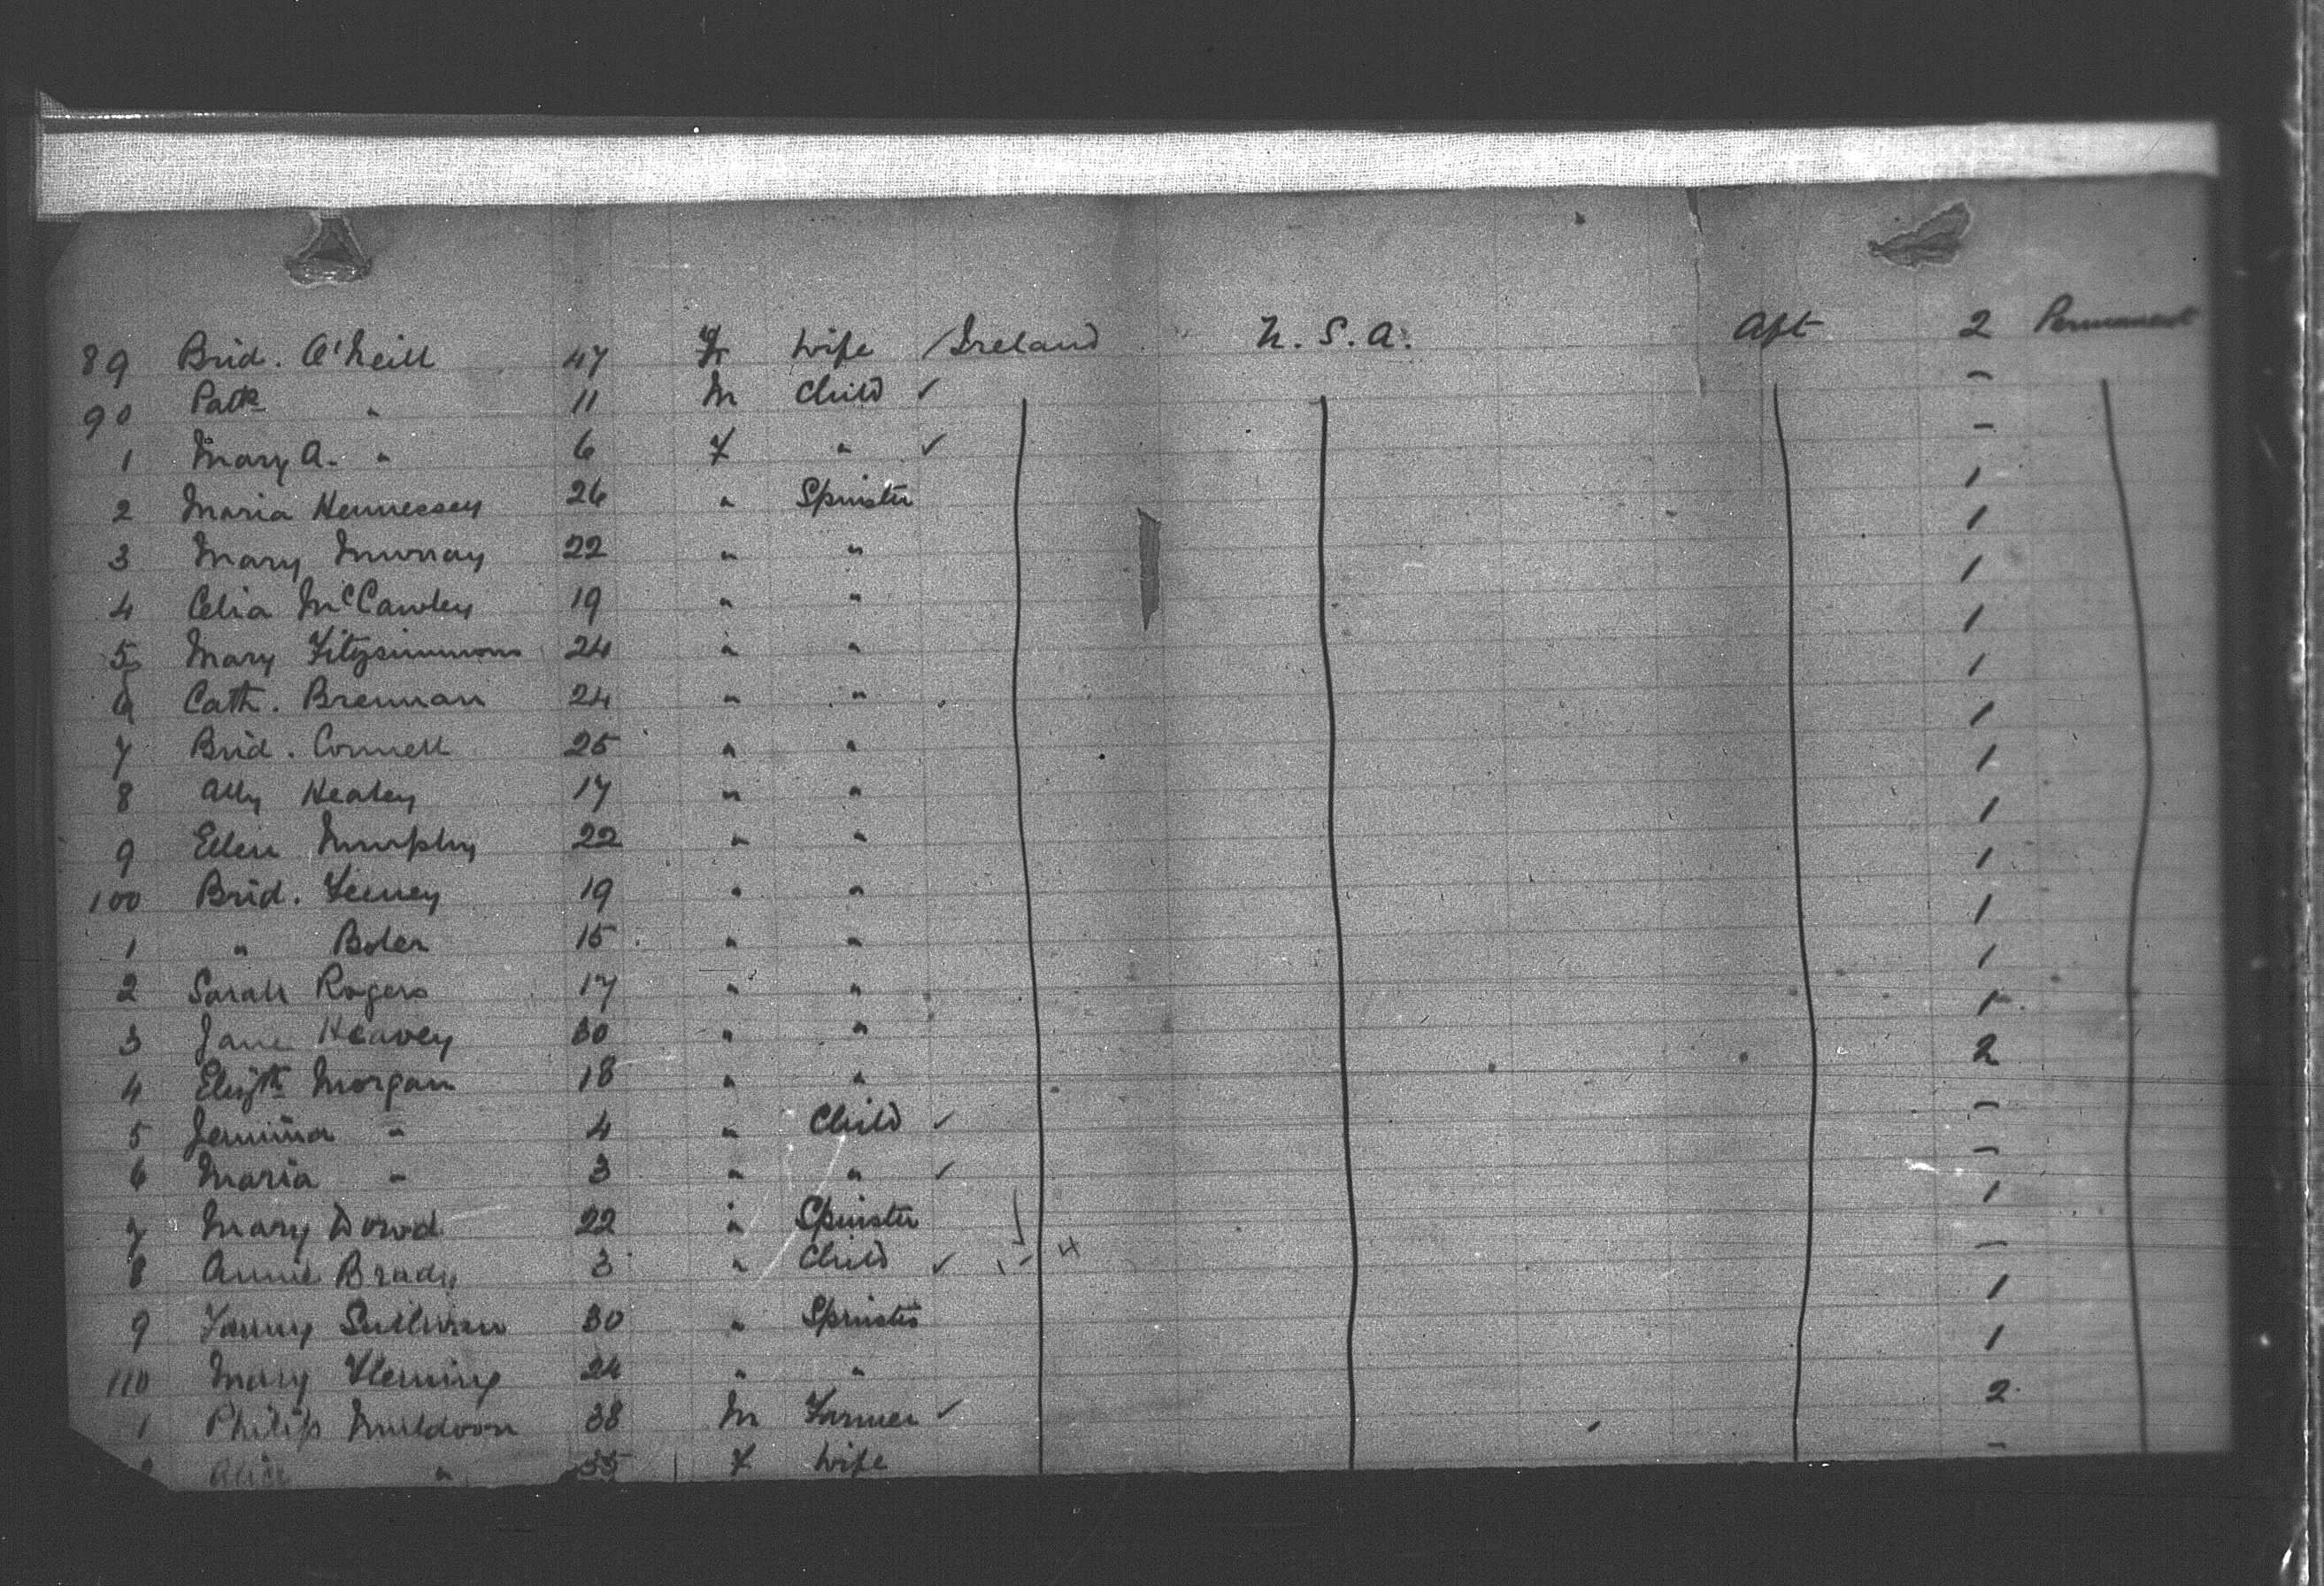 89 Brid. O'Neill 47 F Wife Ireland U.S.A. Aft 2 Permanent
90 Patk " 11 M Child ✓ -
1 Mary A. " 6 F " ✓ -
2 Maria Hennessey 26 " Spinster 1
3 Mary Murray 22 " " 1
4 Celia McCawley 19 " " 1
5 Mary Fitzsimmons 24 " " 1
6 Cath. Brennan 24 " " 1
7 Brid. Connell 25 " " 1
8 Ally Healey 17 " " 1
9 Ellen Murphy 22 " " 1
100 Brid. Feeney 19 " " 1
1 " Boler 15 " " 1
2 Sarah Rogers 17 " " 1
3 Jane Heavey 30 " " 1
4 Elizth Morgan 18 " " 2
5 Jemima " 4 " Child ✓ -
6 Maria " 3 " " ✓ -
7 Mary Dowd 22 " Spinster 1
8 Annie Brady 3 " Child ✓ -
9 Fanny Sullivan 30 " Spinster 1
110 Mary Fleming 24 " " 1
1 Philip Muldoon 38 M Farmer ✓ 2
2 Alice " 35 F Wife -